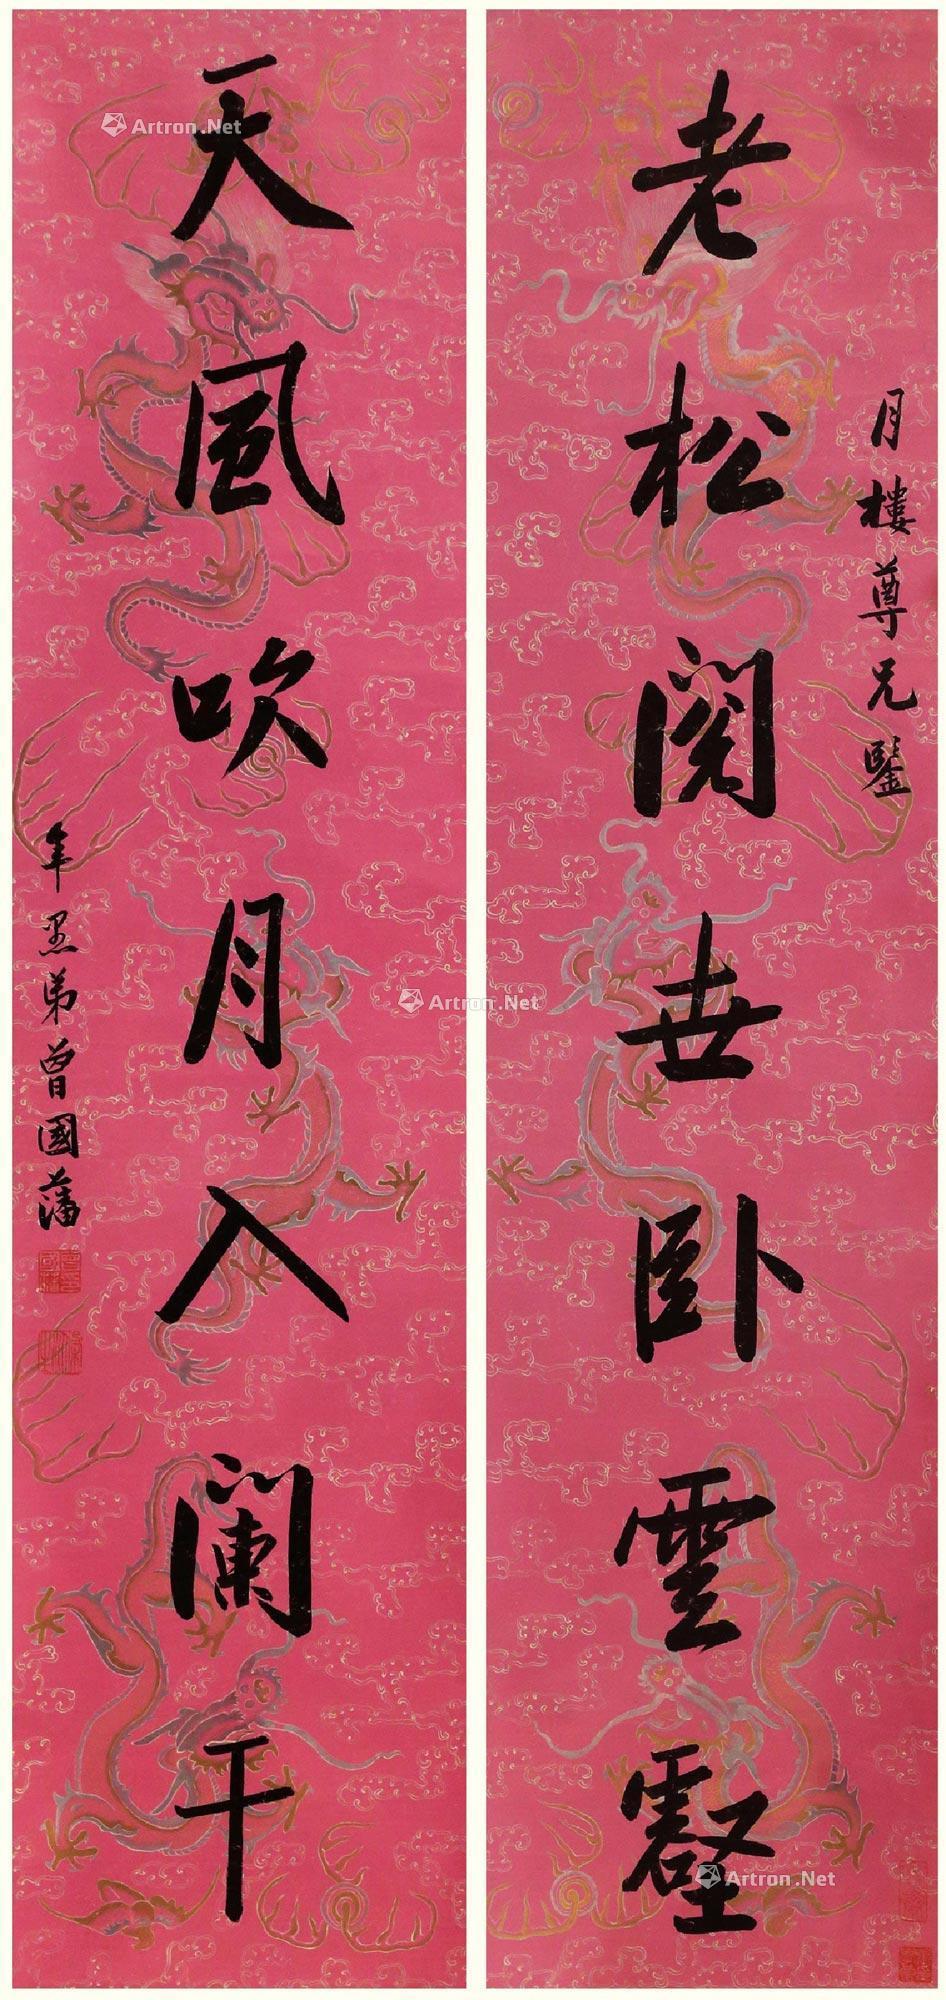 月樓尊兄鑒
老松閱世卧雲壑
天風吹月入闌干
年愚弟曾國藩
Artron.Net
Artron.Net
Artron.Net